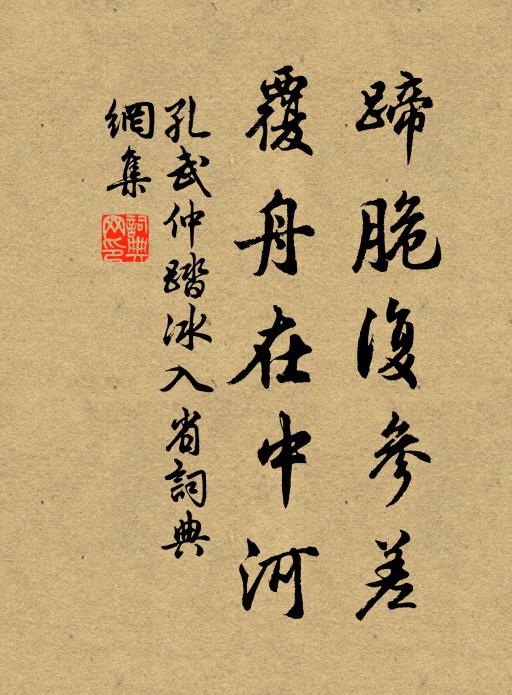 蹄脆復參差
覆舟在中河
孔武仲踏冰入省詞典
網集
詞典網印